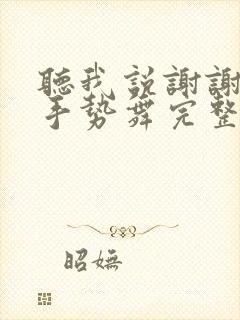 聽我説謝謝
手勢舞完整
昭嫵